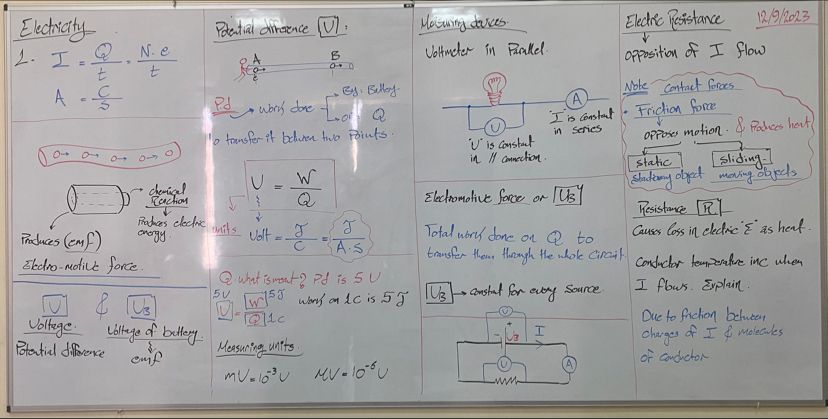 Electricity
1. I = Q/t = N.e/t
A = C/s
chemical
Reaction
Produces electric
energy
Produces (emf)
Electro-motive force.
U & UB
Voltage. Voltage of battery
Potential difference emf
Potential difference U :
A B
Pd → work done by Battery
on Q
to transfer it between two Points.
U = W/Q
units Volt = J/C = J/A.s
Q. what is meant? Pd is 5 V
5V U = W 5J work on 1C is 5 J
Q 1C
Measuring units.
mV = 10⁻³ V MV = 10⁻⁶ V
Measuring devices.
Voltmeter in Parallel.
A
V
"I" is constant
in series
"U" is constant
in // connection.
Electromotive force or UB
Total work done on Q to
transfer them through the whole circuit.
UB → constant for every source.
V
- +
UB I
V A
Electric Resistance 12/9/2023
opposition of I flow
Note Contact forces
• Friction force
opposes motion. & Produces heat
static sliding
stationary object moving objects
Resistance R
Causes loss in electric "E" as heat.
Conductor temperature inc when
I flows. Explain.
Due to friction between
charges of I & molecules
of conductor